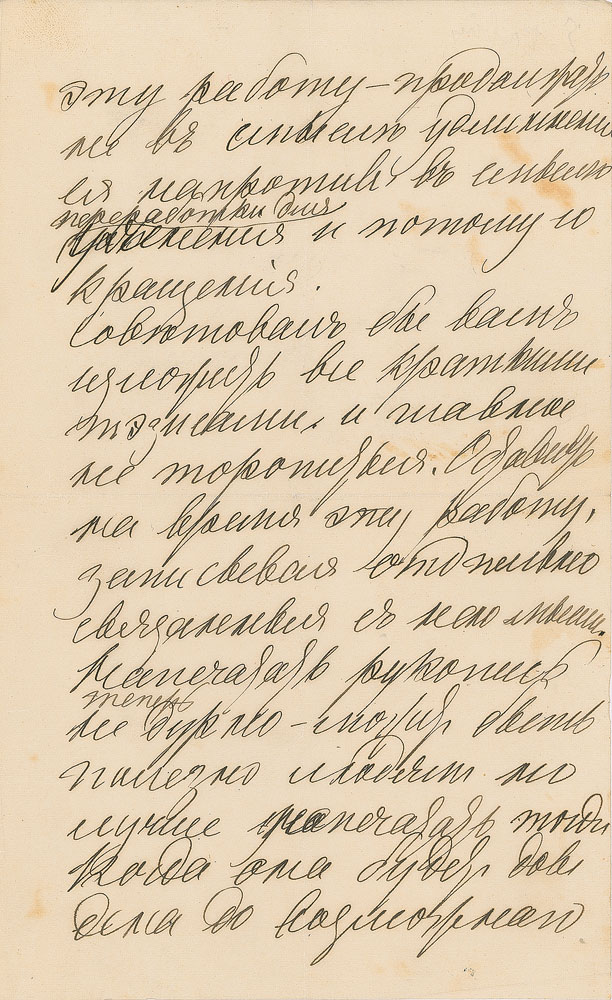 эту работу – продолжать
не въ смыслѣ удлиненія
ея напротивъ въ смыслѣ
переработки для
уясненія и потому со
кращенія.
Совѣтовалъ бы вамъ
изложить все краткими
тэзисами. и главное
не торопиться. Оставить
на время эту работу,
записывая отдѣльно
связанныя съ нею мысли.
Напечатать рукопись
теперь
не дурно – можетъ быть
полезно людямъ но
лучше напечатать тогда
когда она будетъ дове
дена до возможнаго